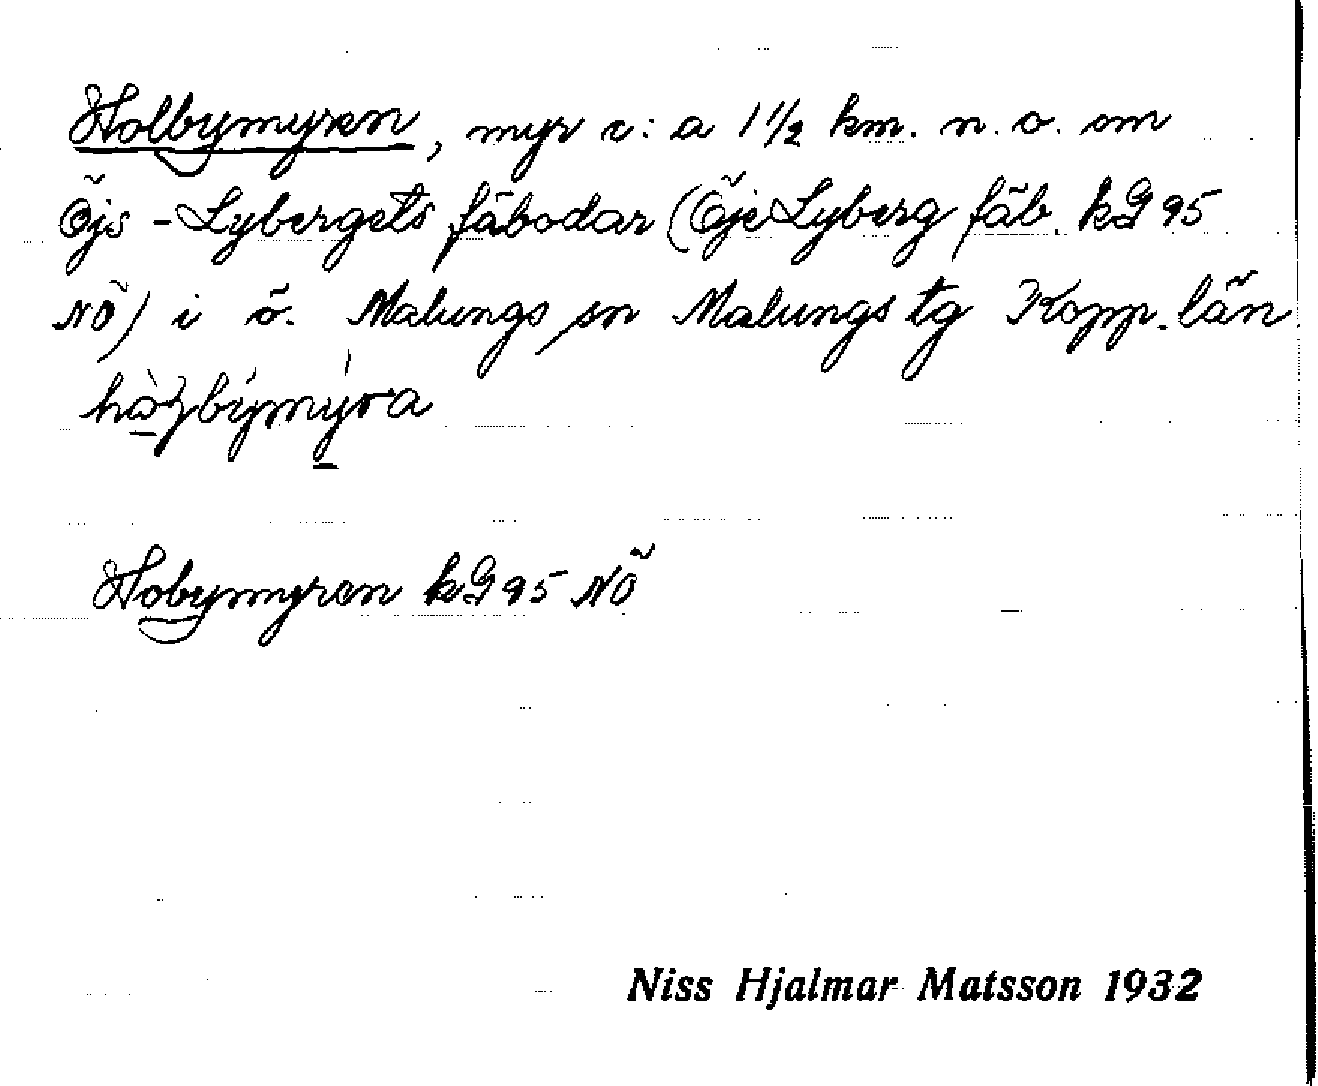 Holbymyren, myr c:a 1 1/2 km. n.o. om
Öjs-Lybergets fäbodar (Öje Lyberg fäb. kG 95
NÖ) i ö. Malungs sn Malungs tg Kopp. län
Hobymyren kG 95 NÖ
Niss Hjalmar Matsson 1932